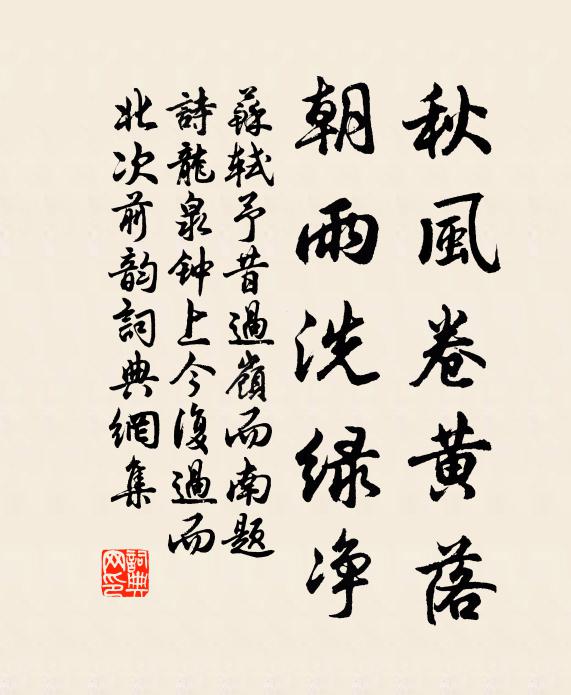 秋風卷黄落
朝雨洗绿净
蘇軾予昔過嶺而南題
詩龍泉钟上今復過而
北次前韵詞典網集
詞典
网印